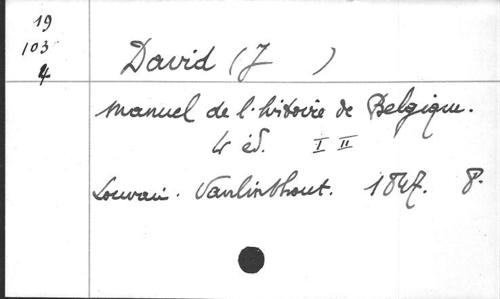 19
103
4
David (J )
Manuel de l'histoire de Belgique.
4 éd. I II
Louvain. Vanlinthout. 1847. 8.